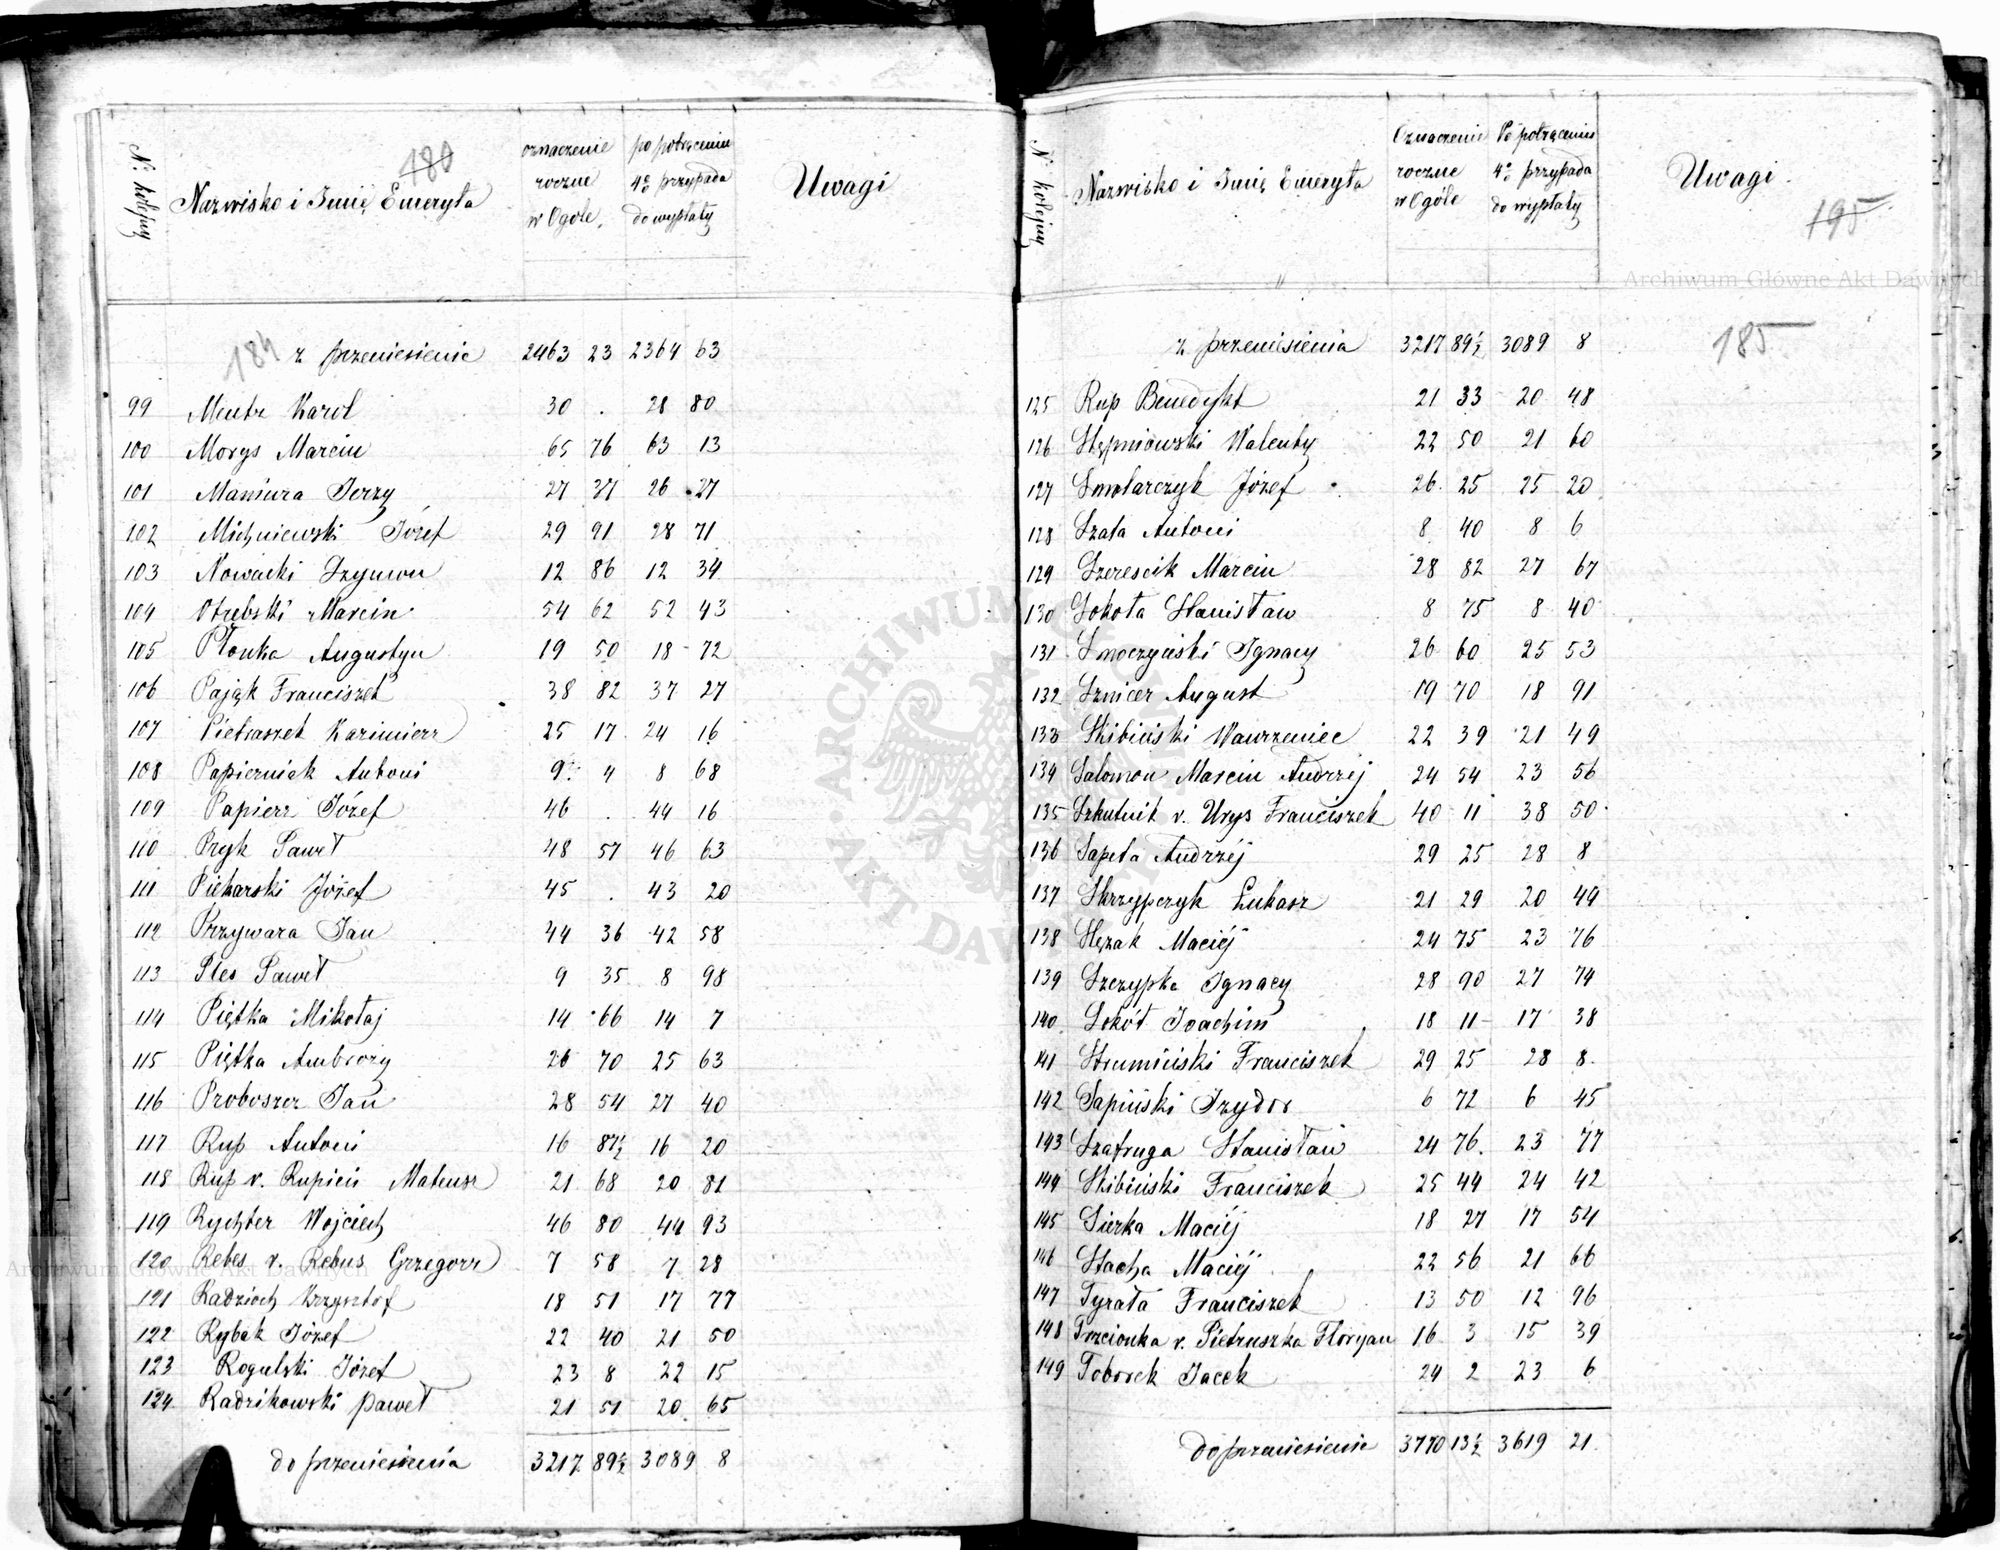 180
N: kolejny Nazwisko i Imię Emeryta oznaczenie roczne w Ogóle po potrąceniu 4% przypada do wypłaty Uwagi
184 z przeniesienia 2463 23 2364 63
99 Mentz Karol 30 . 28 80
100 Morys Marcin 65 76 63 13
101 Maniura Jerzy 27 37 26 27
102 Michniewski Józef 29 91 28 71
103 Nowacki Szymon 12 86 12 34
104 Otrębski Marcin 54 62 52 43
105 Płonka Augustyn 19 50 18 72
106 Pająk Franciszek 38 82 37 27
107 Pietraszek Kazimierz 25 17 24 16
108 Papierniak Antoni 9 4 8 68
109 Papierz Józef 46 . 44 16
110 Pryk Paweł 48 57 46 63
111 Piekarski Józef 45 . 43 20
112 Przywara Jan 44 36 42 58
113 Ples Paweł 9 35 8 98
114 Piętka Mikołaj 14 66 14 7
115 Piętka Ambroży 26 70 25 63
116 Proboszcz Jan 28 54 27 40
117 Rup Antoni 16 87½ 16 20
118 Rup v. Rupień Mateusz 21 68 20 81
119 Rychter Wojciech 46 80 44 93
120 Rebes v. Rebus Grzegorz 7 58 7 28
121 Radzioch Krzysztof 18 51 17 77
122 Rybak Józef 22 40 21 50
123 Rogulski Józef 23 8 22 15
124 Radzikowski Paweł 21 51 20 65
do przeniesienia 3217 89½ 3089 8
N: kolejny Nazwisko i Imię Emeryta Oznaczenie roczne w Ogóle Po potrąceniu 4% przypada do wypłaty Uwagi
195
Archiwum Główne Akt Dawnych
z przeniesienia 3217 89½ 3089 8 185
125 Rup Benedykt 21 33 20 48
126 Stępniowski Walenty 22 50 21 60
127 Smolarczyk Józef 26 25 25 20
128 Szata Antoni 8 40 8 6
129 Szerescik Marcin 28 82 27 67
130 Sokoła Stanisław 8 75 8 40
131 Smoczyński Ignacy 26 60 25 53
132 Sznicer August 19 70 18 91
133 Skibiński Wawrzeniec 22 39 21 49
134 Salomon Marcin Andrzéj 24 54 23 56
135 Szkutnik v. Urys Franciszek 40 11 38 50
136 Sapeta Andrzéj 29 25 28 8
137 Skrzypczyk Łukasz 21 29 20 44
138 Slęzak Maciéj 24 75 23 76
139 Szczypka Ignacy 28 90 27 74
140 Sokół Joachim 18 11 17 38
141 Strumiński Franciszek 29 25 28 8
142 Sapiński Izydor 6 72 6 45
143 Szafruga Stanisław 24 76 23 77
144 Skibiński Franciszek 25 44 24 42
145 Sierka Maciéj 18 27 17 54
146 Stacha Maciéj 22 56 21 66
147 Tyrała Franciszek 13 50 12 96
148 Trzcionka v. Pietruszka Floryan 16 3 15 39
149 Toborek Jacek 24 2 23 6
do przeniesienia 3770 13½ 3619 21
ARCHIWUM GŁÓWNE AKT DAWNYCH
Archiwum Główne Akt Dawnych